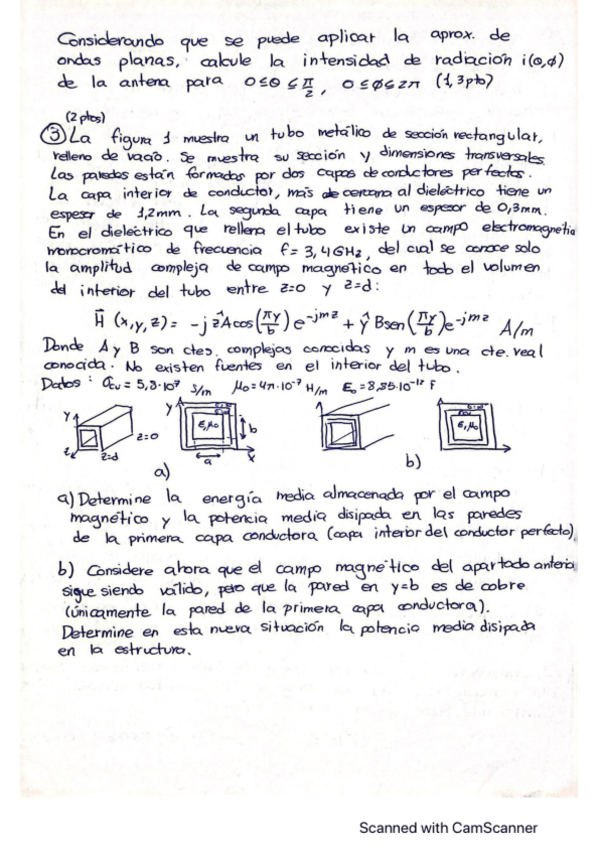 Considerando que se puede aplicar la aprox. de
ondas planas, calcule la intensidad de radiación i(θ,ϕ)
de la antena para 0≤θ≤π/2, 0≤ϕ≤2π (1,3pto)
(2ptos)
③ La figura 1 muestra un tubo metálico de sección rectangular,
relleno de vacío. Se muestra su sección y dimensiones transversales.
Las paredes están formadas por dos capas de conductores perfectos.
La capa interior de conductor, más cercana al dieléctrico tiene un
espesor de 1,2mm. La segunda capa tiene un espesor de 0,3mm.
En el dieléctrico que rellena el tubo existe un campo electromagnetia
monocromático de frecuencia f=3,4GHz, del cual se conoce solo
la amplitud compleja de campo magnético en todo el volumen
del interior del tubo entre z=0 y z=d:
H⃗ (x,y,z) = -j ẑ A cos(πy/b) e^-jmz + ŷ B sen(πy/b) e^-jmz A/m
Donde A y B son ctes. complejas conocidas y m es una cte. real
conocida. No existen fuentes en el interior del tubo.
Datos: σcu = 5,8·10⁷ S/m μ₀=4π·10⁻⁷ H/m ε₀=8,85·10⁻¹² F
y z z=d z=0 y ε,μ₀ b a x ε,μ₀
a) b)
a) Determine la energía media almacenada por el campo
magnético y la potencia media disipada en las paredes
de la primera capa conductora (capa interior del conductor perfecto)
b) Considere ahora que el campo magnético del apartado anteria
sigue siendo válido, pero que la pared en y=b es de cobre
(únicamente la pared de la primera capa conductora).
Determine en esta nueva situación la potencia media disipada
en la estructura.
Scanned with CamScanner